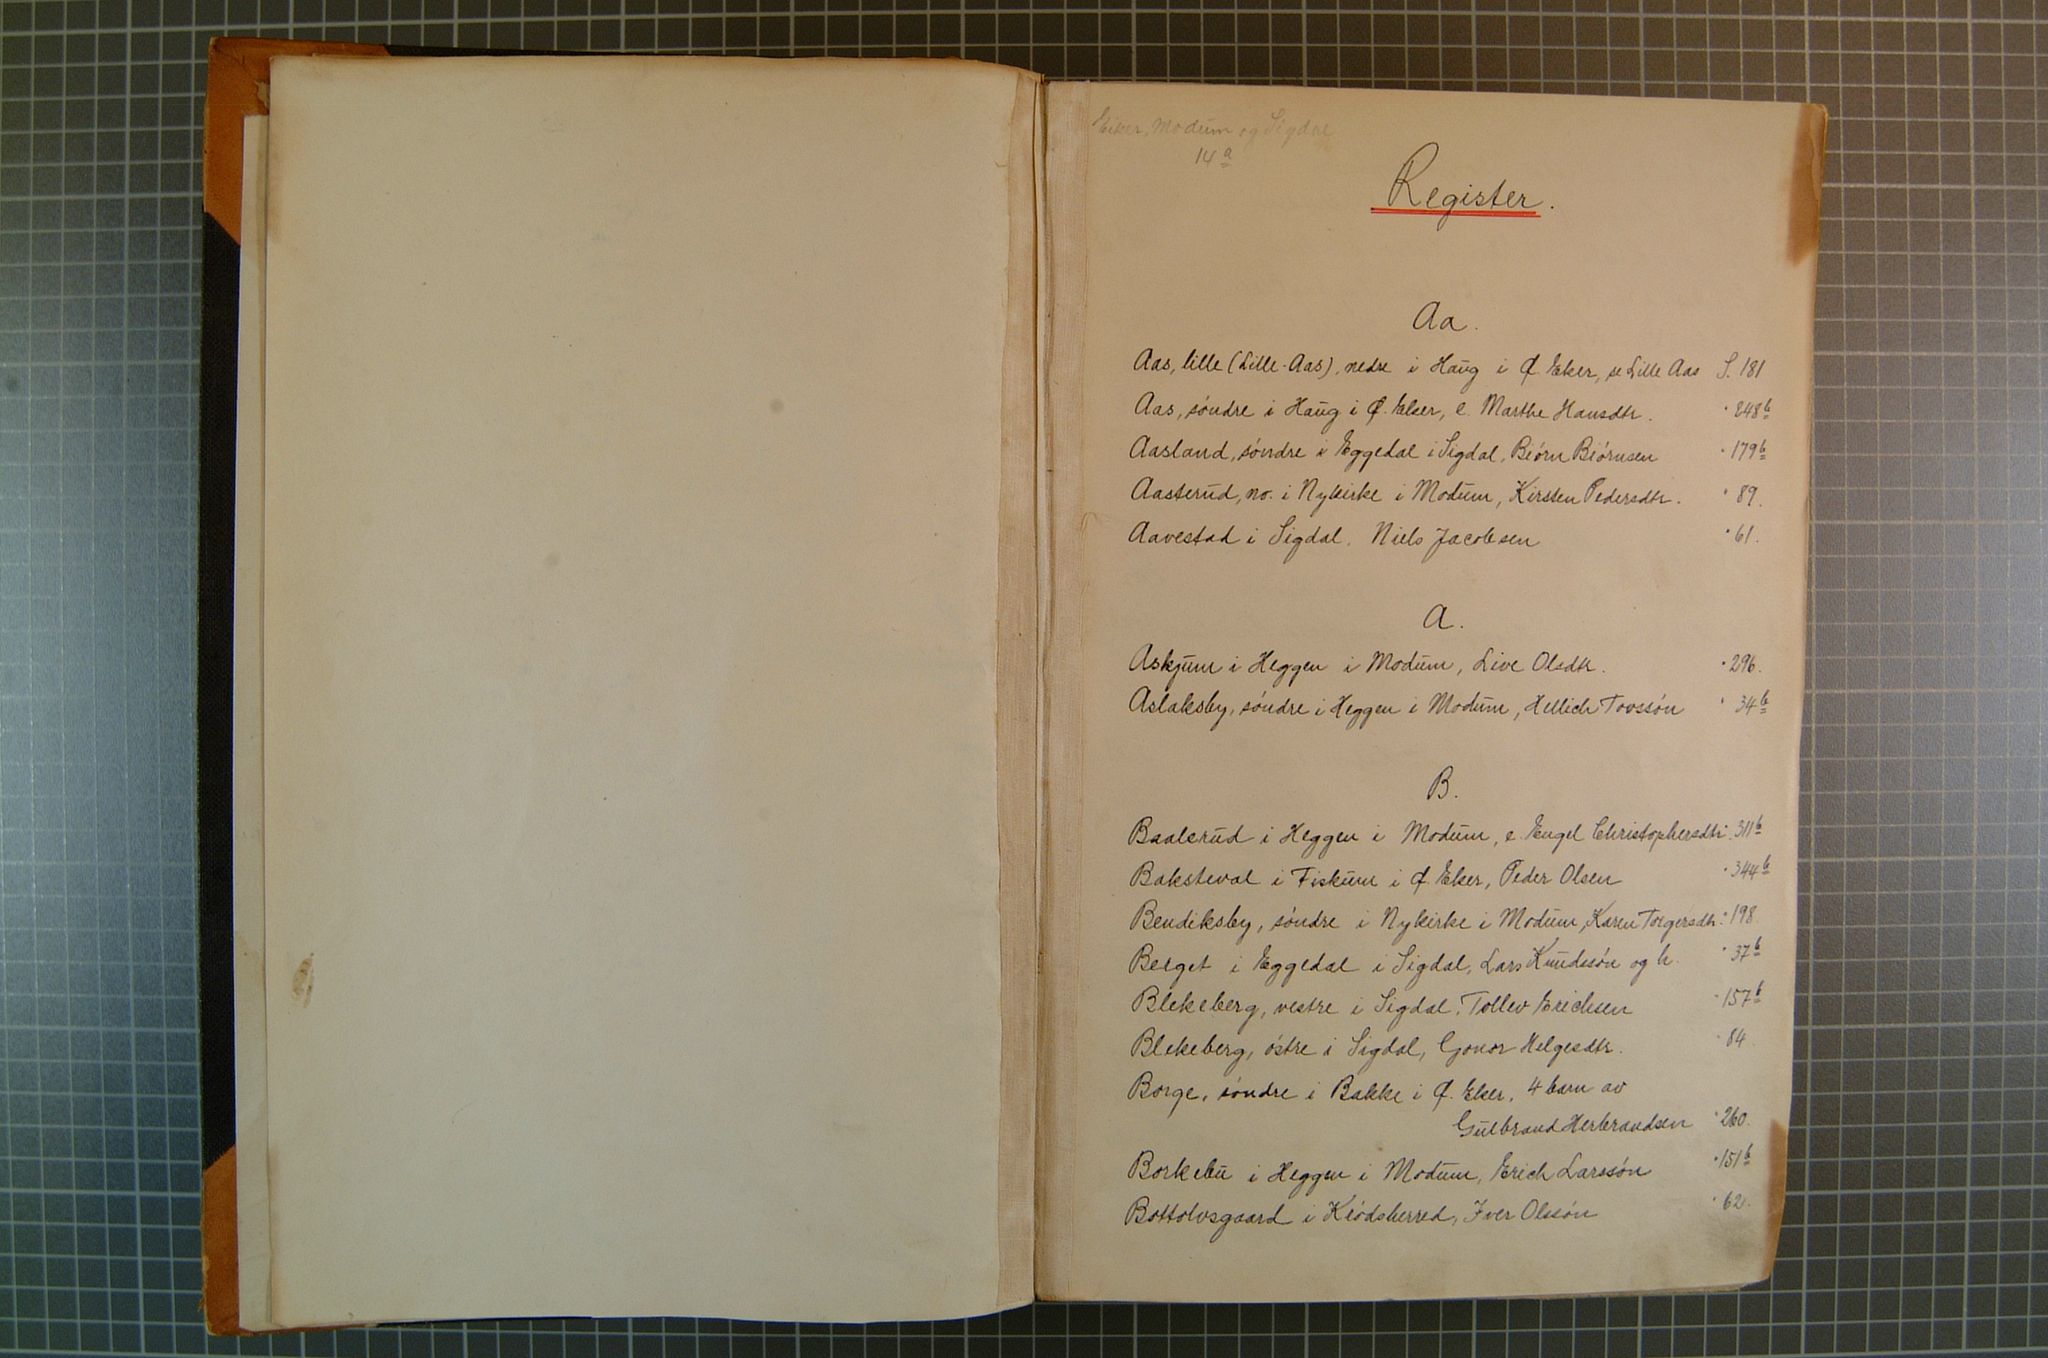 Eiker, Modum og Sigdal
14 a
Register.
Aa.
Aas, lille (Lille-Aas), nedre i Haug i Ø. Eker, se Lille Aas S. 181
Aas, søndre i Haug i Ø. Eker, e. Marthe Hansdtr. " 248 b
Aasland, søndre i Eggedal i Sigdal, Biørn Biørnsen " 179 b
Aasterud, no. i Nykirke i Modum, Kirsten Pedersdtr. " 89.
Aavestad i Sigdal. Niels Jacobsen " 61.
A.
Askjum i Heggen i Modum, Live Olsdtr. " 296.
Aslaksby, søndre i Heggen i Modum, Hellich Tovssøn " 34 b
B.
Baalsrud i Heggen i Modum, e. Engel Christophersdtr. " 311 b
Baksteval i Fiskum i Ø. Eker, Peder Olsen " 344 b
Bendiksby, søndre i Nykirke i Modum, Karen Torgersdtr. " 198
Berget i Eggedal i Sigdal, Lars Knudssøn og h. " 37 b
Blekeberg, vestre i Sigdal, Tollev Erichsen " 157 b
Blekeberg, østre i Sigdal, Gonor Helgesdtr. " 84.
Borge, søndre i Bakke i Ø. Eker, 4 barn av
Gulbrand Herbrandsen " 260.
Borkebu i Heggen i Modum, Erich Larssøn " 151 b
Bottolvsgaard i Krødsherred, Iver Olssøn " 62.